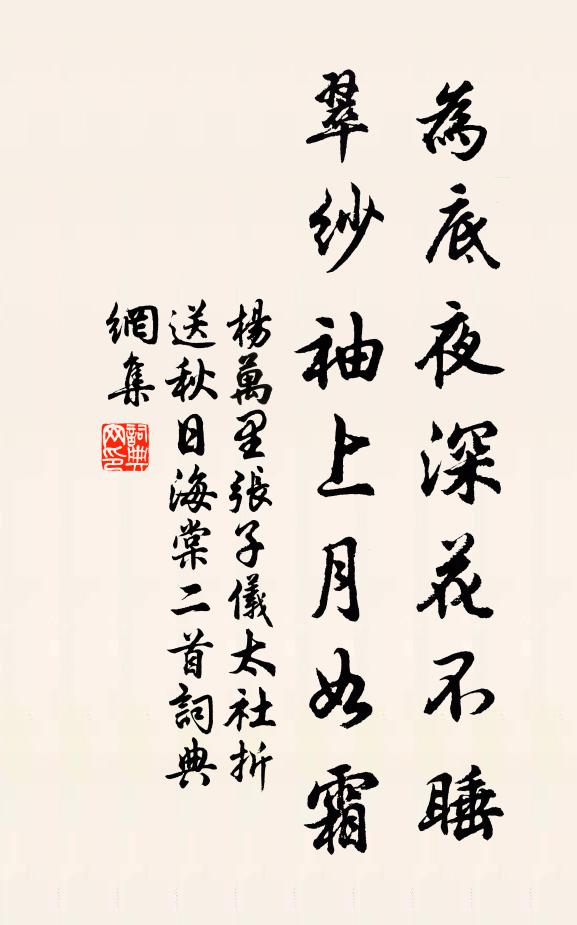 為底夜深花不睡
翠紗袖上月如霜
楊萬里張子儀太社折
送秋日海棠二首詞典
網集
詞典
网印